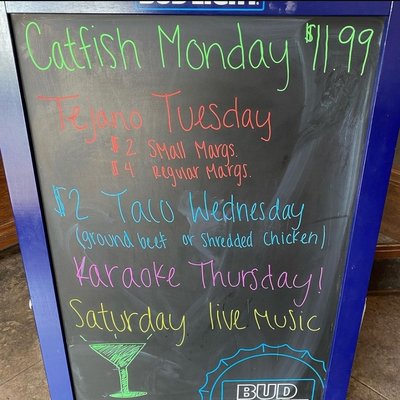 BUD LIGHT
Catfish Monday $11.99
Tejano Tuesday
$2 Small Margs.
$4 Regular Margs.
$2 Taco Wednesday
(ground beef or shredded chicken)
Karaoke Thursday!
Saturday live Music
BUD